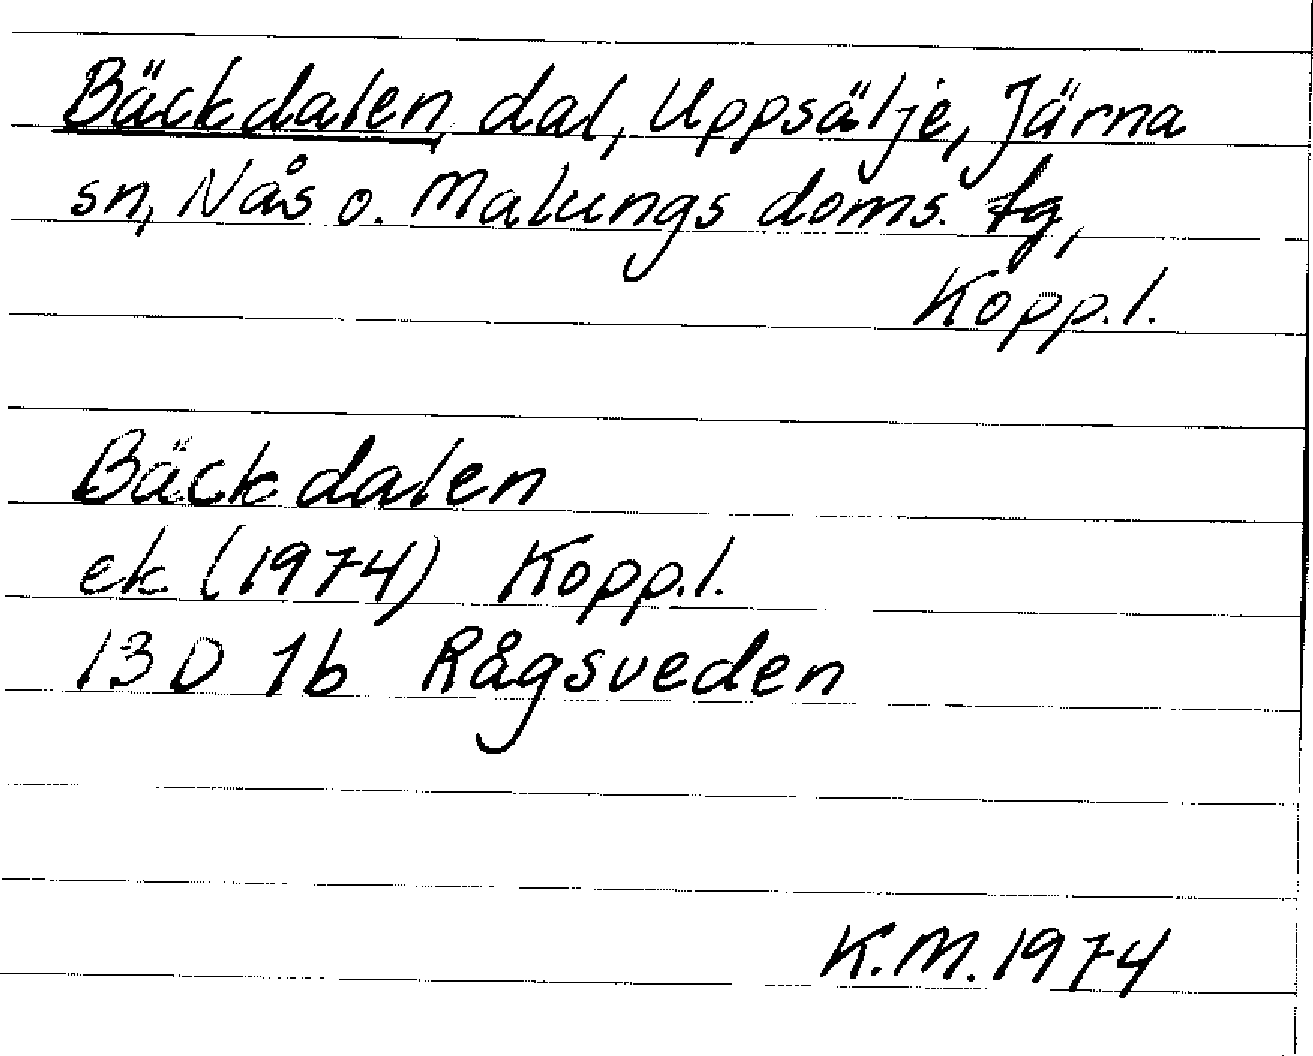 Bäckdalen, dal, Uppsälje, Järna
sn, Nås o. Malungs doms. tg,
Kopp.l.
Bäckdalen
ek (1974) Kopp.l.
13 D 1b Rågsveden
K.M. 1974